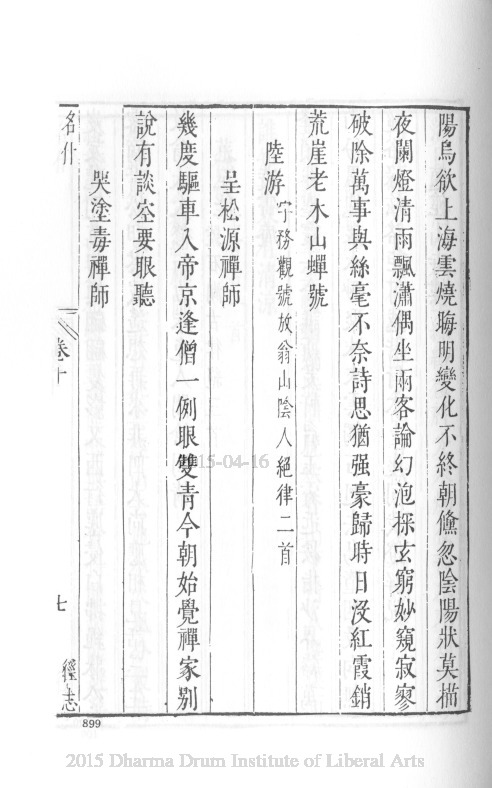 陽烏欲上海雲燒晦明變化不終朝儵忽陰陽狀莫描
夜闌燈清雨飄瀟偶坐兩客論幻泡探玄窮妙窺寂寥
破除萬事與絲毫不奈詩思猶强豪歸時日没紅霞銷
荒崖老木山蟬號
陸游字務觀號放翁山陰人絕律二首
呈松源禪師
幾度驅車入帝京逢僧一例眼雙青今朝始覺禪家别
說有談空要眼聽
哭塗毒禪師
名什
卷十
七
徑志
899
2015-04-16
2015 Dharma Drum Institute of Liberal Arts